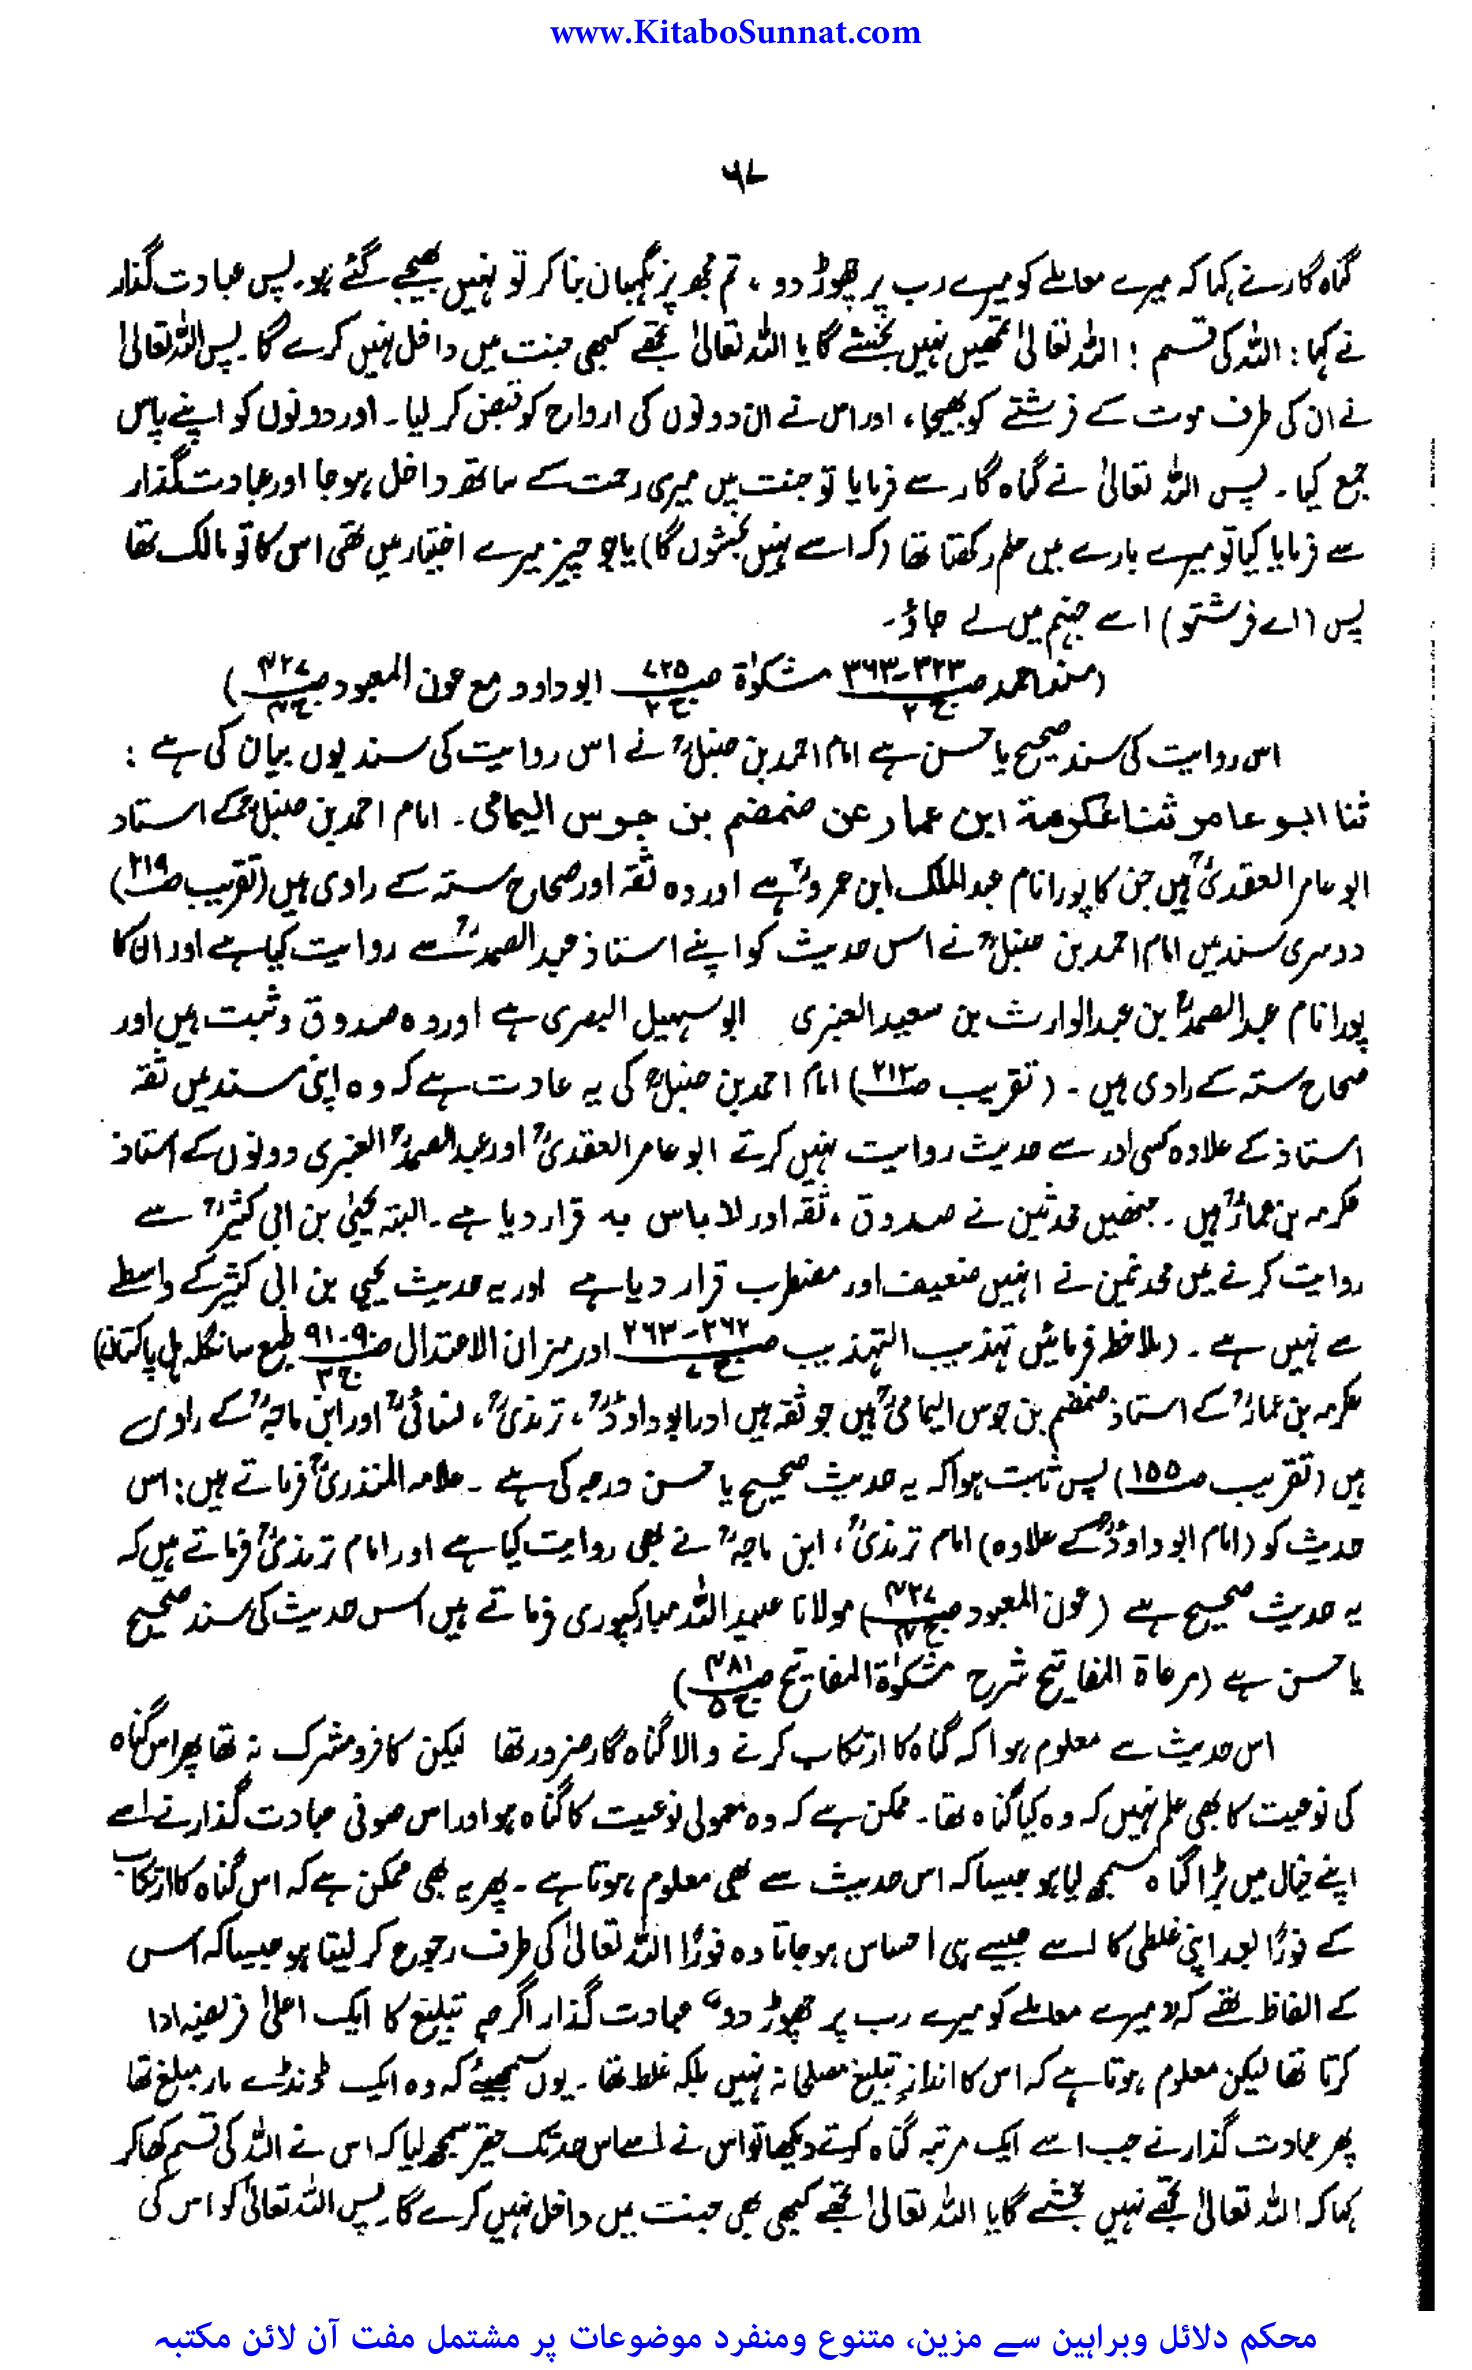 www.KitaboSunnat.com
۶۷
گناہ گار نے کہا کہ میرے معاملے کو میرے رب پر چھوڑ دو ، تم مجھ پر نگہبان بنا کر تو نہیں بھیجے گئے ہو۔ پس عبادت گذار
نے کہا : اللہ کی قسم ! اللہ تعالیٰ تمھیں نہیں بخشے گا یا اللہ تعالیٰ تجھے کبھی جنت میں داخل نہیں کرے گا۔ پس اللہ تعالیٰ
نے ان کی طرف موت کے فرشتے کو بھیجا ، اور اس نے ان دونوں کی ارواح کو قبض کر لیا۔ اور دونوں کو اپنے پاس
جمع کیا۔ پس اللہ تعالیٰ نے گناہ گار سے فرمایا تو جنت میں میری رحمت کے ساتھ داخل ہو جا اور عبادت گذار
سے فرمایا کیا تو میرے بارے میں علم رکھتا تھا (کہ اسے نہیں بخشوں گا) یا جو چیز میرے اختیار میں تھی اس کا تو مالک تھا
پس (اے فرشتو) اسے جہنم میں لے جاؤ۔
(مسند احمد ص۳۲۳-۳۶۳ ج۲ مشکوٰۃ ص۷۲۵ ج۲ ابو داود مع عون المعبود ص۴۲۷ ج۴)
اس روایت کی سند صحیح یا حسن ہے امام احمد بن حنبلؒ نے اس روایت کی سند یوں بیان کی ہے :
ثنا ابو عامر ثنا عکرمة ابن عمار عن ضمضم بن جوس الیمامی۔ امام احمد بن حنبلؒ کے استاد
ابو عامر العقدیؒ ہیں جن کا پورا نام عبد الملک ابن عمروؒ ہے اور وہ ثقہ اور صحاح ستہ کے راوی ہیں (تقریب ص۲۱۹)
دوسری سند میں امام احمد بن حنبلؒ نے اس حدیث کو اپنے استاذ عبد الصمدؒ سے روایت کیا ہے اور ان کا
پورا نام عبد الصمدؒ بن عبد الوارث بن سعید العنبری ابو سہیل البصری ہے اور وہ صدوق و ثبت ہیں اور
صحاح ستہ کے راوی ہیں۔ (تقریب ص۲۱۳) امام احمد بن حنبلؒ کی یہ عادت ہے کہ وہ اپنی سند میں ثقہ
استاذ کے علاوہ کسی اور سے حدیث روایت نہیں کرتے ابو عامر العقدیؒ اور عبد الصمدؒ العنبری دونوں کے استاذ
عکرمہ بن عمارؒ ہیں۔ جنھیں محدثین نے صدوق ، ثقہ اور لا باس بہ قرار دیا ہے۔ البتہ یحییٰ بن ابی کثیرؒ سے
روایت کرنے میں محدثین نے انہیں ضعیف اور مضطرب قرار دیا ہے اور یہ حدیث یحیی بن ابی کثیر کے واسطے
سے نہیں ہے۔ (ملاحظہ فرمائیں تہذیب التہذیب ص۲۶۲-۲۶۳ ج۷ اور میزان الاعتدال ص۹۰-۹۱ ج۳ طبع سانگلہ ہل پاکستان)
عکرمہ بن عمارؒ کے استاذ ضمضم بن جوس الیمامیؒ ہیں جو ثقہ ہیں اور ابو داودؒ ، ترمذیؒ ، نسائیؒ اور ابن ماجہؒ کے راوی
ہیں (تقریب ص۱۵۵) پس ثابت ہوا کہ یہ حدیث صحیح یا حسن درجہ کی ہے۔ علامہ المنذریؒ فرماتے ہیں : اس
حدیث کو (امام ابو داودؒ کے علاوہ) امام ترمذیؒ ، ابن ماجہؒ نے بھی روایت کیا ہے اور امام ترمذیؒ فرماتے ہیں کہ
یہ حدیث صحیح ہے (عون المعبود ص۴۲۷ ج۴) مولانا عبید اللہ مبارکپوری فرماتے ہیں اس حدیث کی سند صحیح
یا حسن ہے (مرعاۃ المفاتیح شرح مشکوٰۃ المفاتیح ص۴۸۱ ج۵)
اس حدیث سے معلوم ہوا کہ گناہ کا ارتکاب کرنے والا گناہ گار ضرور تھا لیکن کافر و مشرک نہ تھا پھر اس گناہ
کی نوعیت کا بھی علم نہیں کہ وہ کیا گناہ تھا۔ ممکن ہے کہ وہ معمولی نوعیت کا گناہ ہو اور اس صوفی عبادت گذار نے اسے
اپنے خیال میں بڑا گناہ سمجھ لیا ہو جیسا کہ اس حدیث سے بھی معلوم ہوتا ہے۔ پھر یہ بھی ممکن ہے کہ اس گناہ کا ارتکاب
کے فوراً بعد اپنی غلطی کا اسے جیسے ہی احساس ہو جاتا وہ فوراً اللہ تعالیٰ کی طرف رجوع کر لیتا ہو جیسا کہ اس
کے الفاظ تھے کہ "میرے معاملے کو میرے رب پر چھوڑ دو" عبادت گذار اگرچہ تبلیغ کا ایک اعلیٰ فریضہ ادا
کرتا تھا لیکن معلوم ہوتا ہے کہ اس کا اندازِ تبلیغ مصلحانہ نہیں بلکہ غلط تھا۔ یوں سمجھیئے کہ وہ ایک ڈنڈے مار مبلغ تھا
پھر عبادت گذار نے جب اسے ایک مرتبہ گناہ کرتے دیکھا تو اس نے اسے اس حد تک حقیر سمجھ لیا کہ اس نے اللہ کی قسم کھا کر
کہا کہ اللہ تعالیٰ تجھے نہیں بخشے گا یا اللہ تعالیٰ تجھے کبھی بھی جنت میں داخل نہیں کرے گا۔ پس اللہ تعالیٰ کو اس کی
محکم دلائل وبراہین سے مزین، متنوع ومنفرد موضوعات پر مشتمل مفت آن لائن مکتبہ